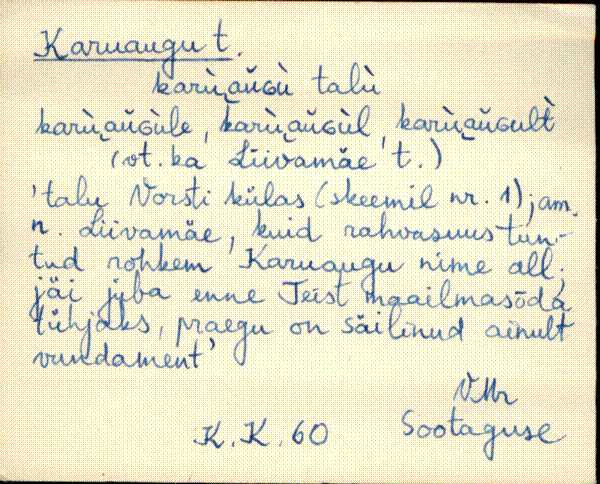 Karuaugu t.
karù͜aŭGù talù
karù͜aŭGùle, karù͜aŭGùl, karù͜aŭGult̀
(vt. ka Liivamäe t.)
'talu Vorsti külas (skeemil nr. 1); am.
n. Liivamäe, kuid rahvasuus tun-
tud rohkem Karuaugu nime all;
jäi juba enne Teist maailmasõda
tühjaks, praegu on säilinud ainult
vundament'
VMr
K.K. 60 Sootaguse